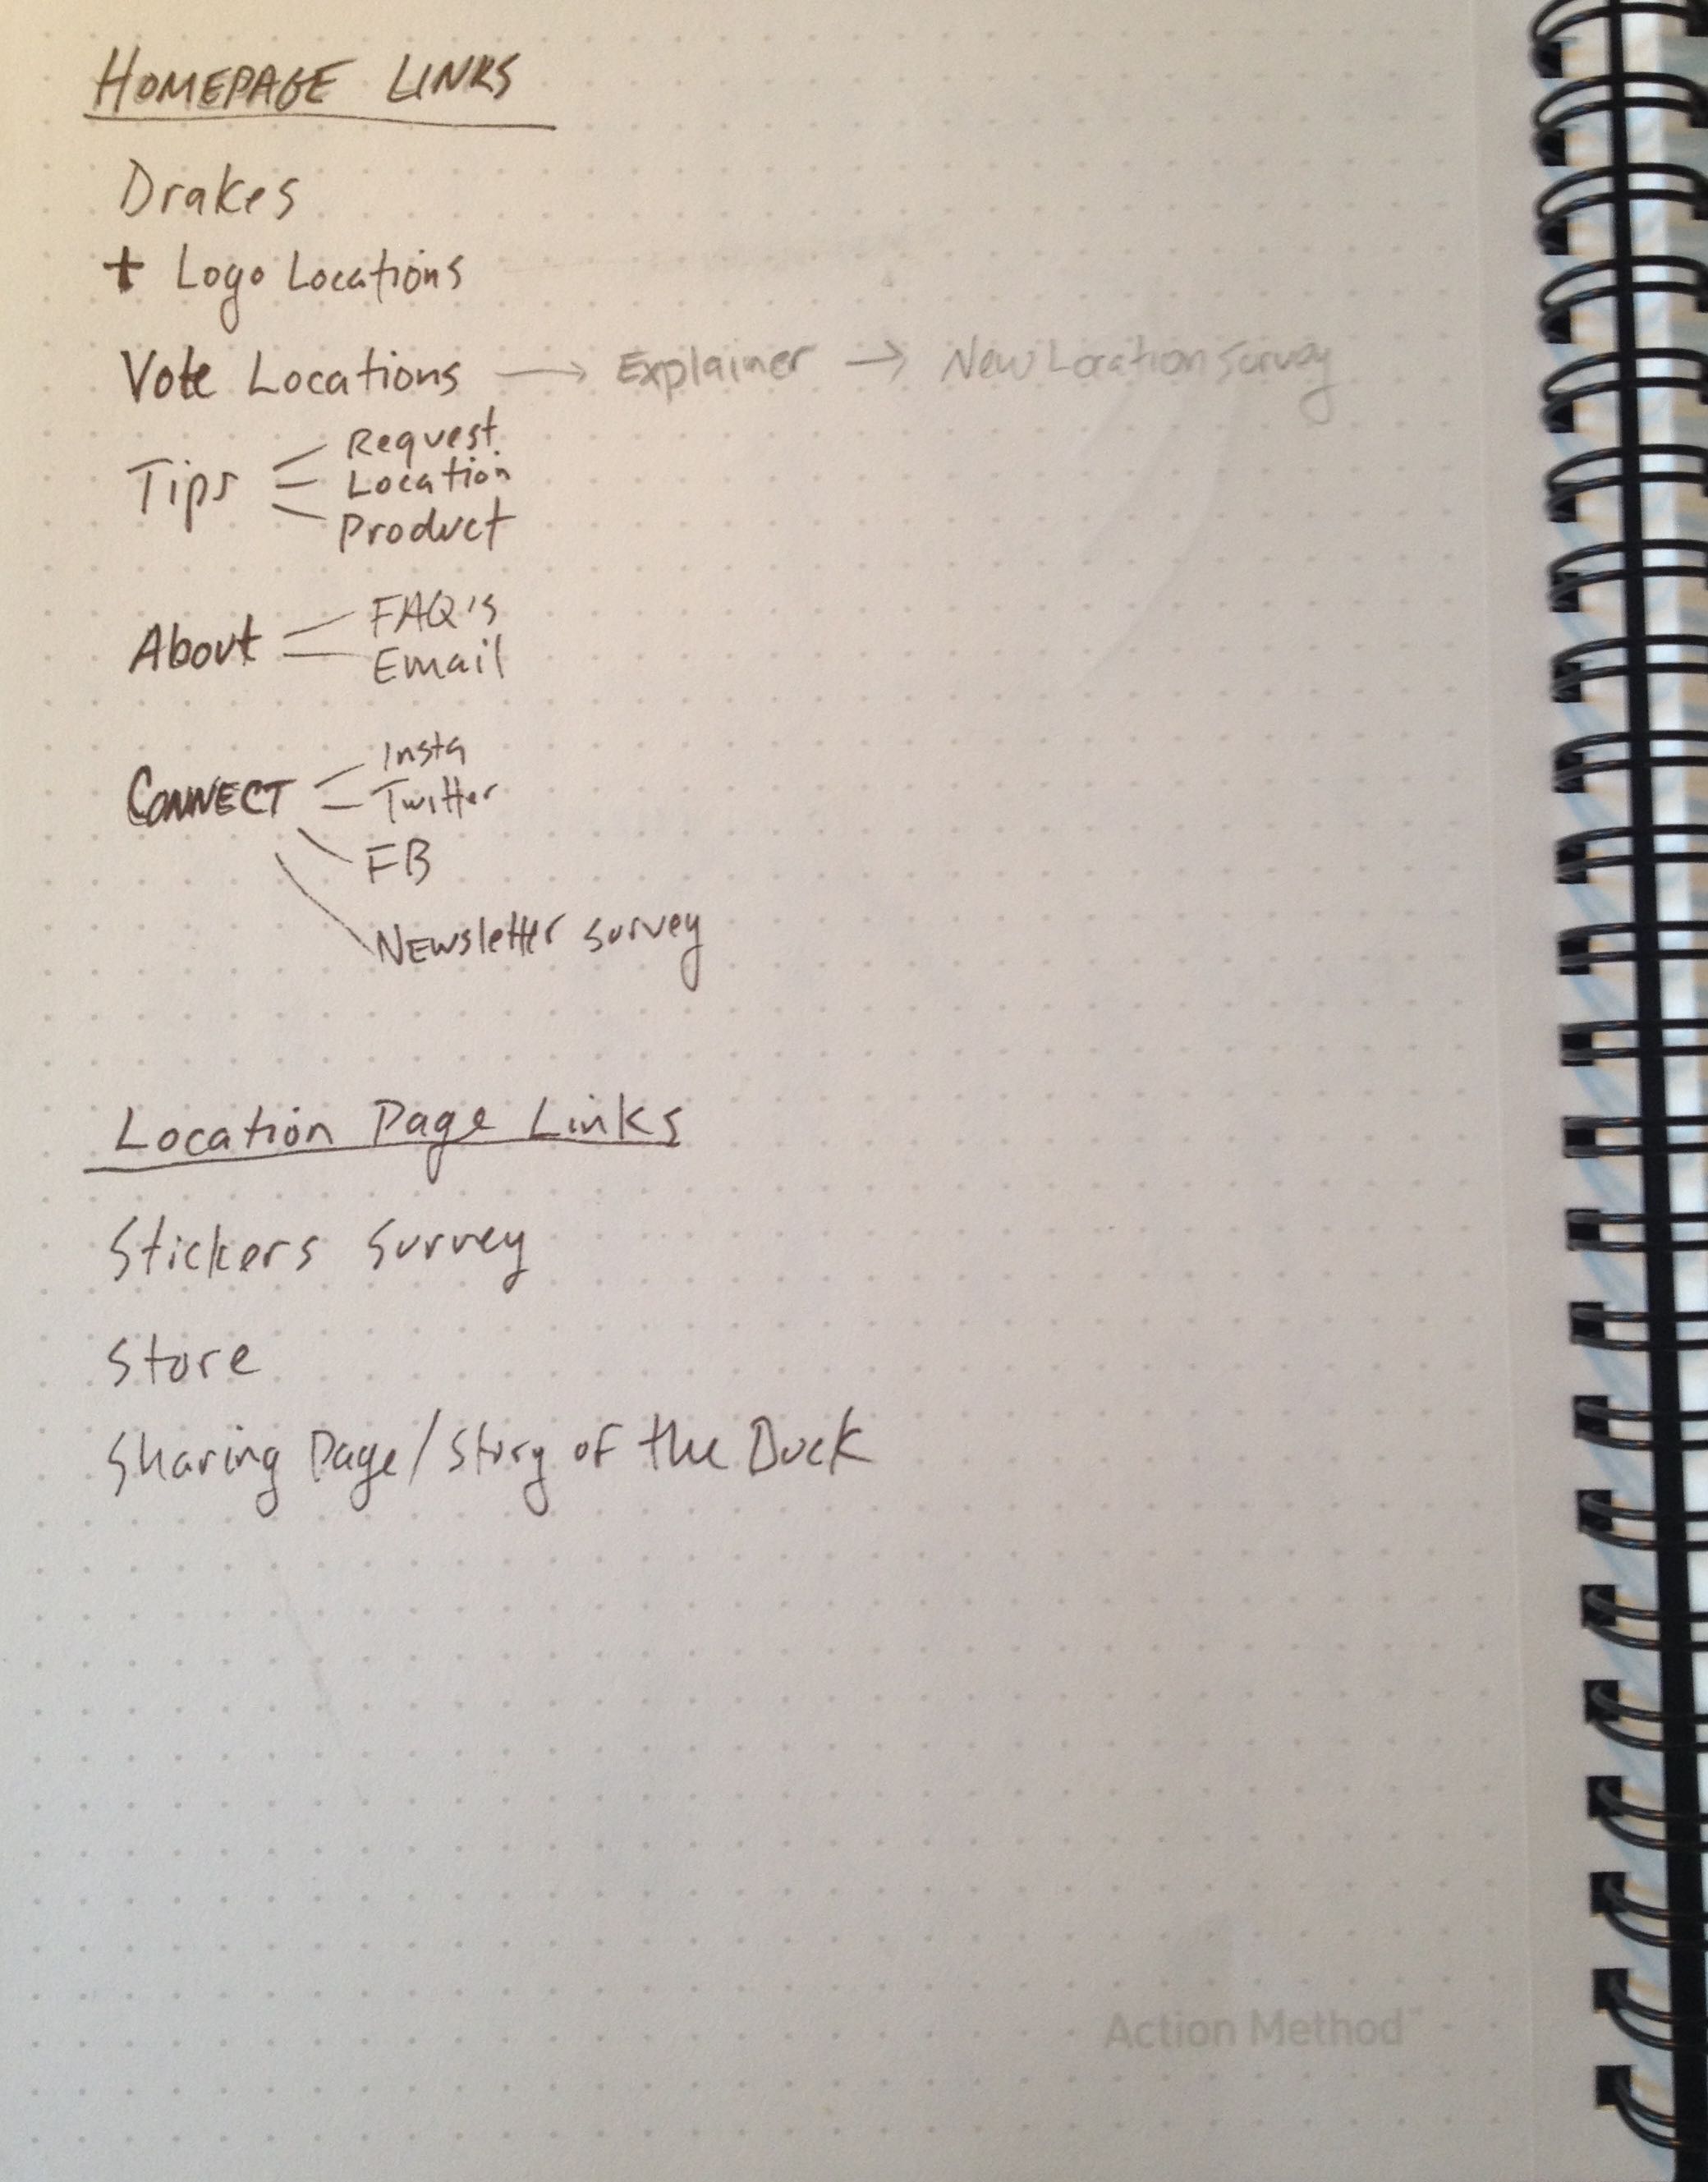 HOMEPAGE LINKS
Drakes
+ Logo Locations
Vote Locations → Explainer → New Location Survey
Request
Tips
Location
Product
FAQ's
About
Email
Insta
CONNECT
Twitter
FB
Newsletter Survey
Location Page Links
Stickers Survey
Store
Sharing Page/Story of the Duck
Action Method™